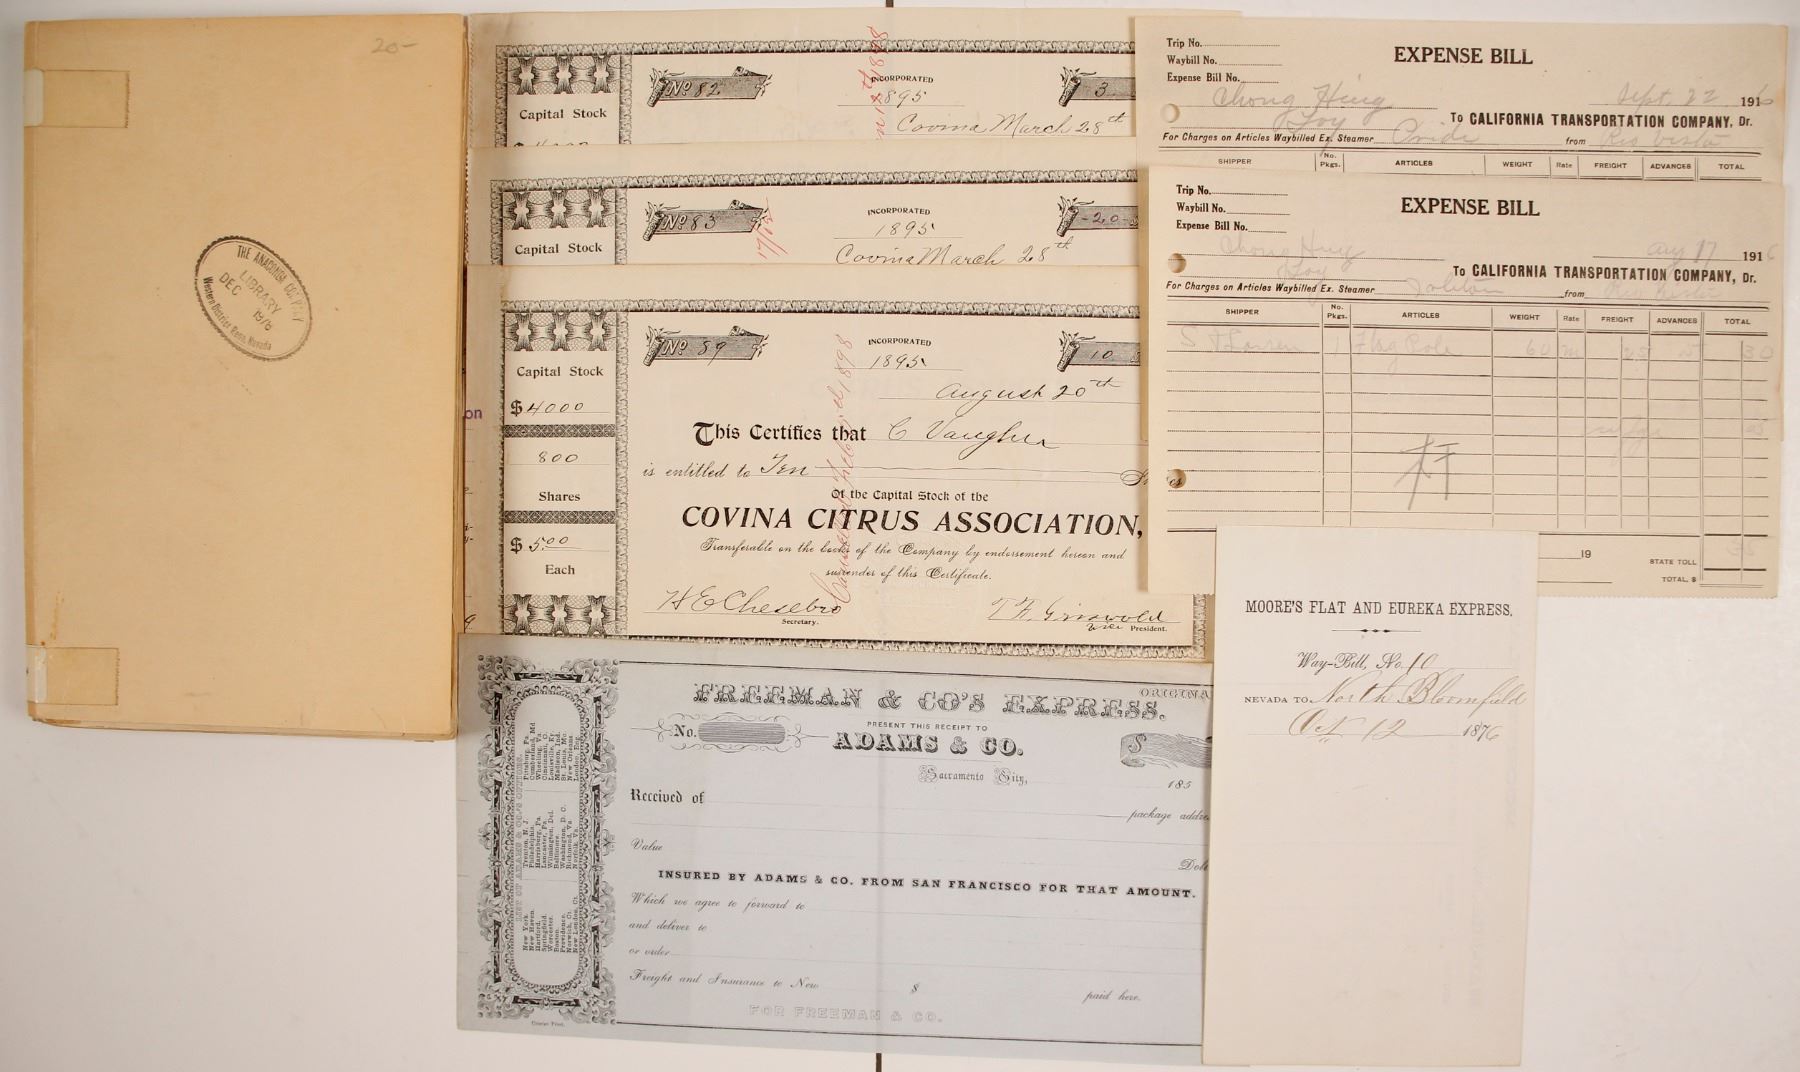 20-
THE ANACONDA COMPANY
LIBRARY
DEC 1976
Western District Reno, Nevada
on
Capital Stock
No 82
INCORPORATED
1895
3
Covina March 28th
Capital Stock
No 83
INCORPORATED
1895
-20-
Covina March 28th
Capital Stock
$4000
800
Shares
$5.00
Each
No 89
INCORPORATED
1895
10
August 20th
This Certifies that C Vaughn
is entitled to Ten Shares
Of the Capital Stock of the
COVINA CITRUS ASSOCIATION,
Transferable on the books of the Company by endorsement hereon and
surrender of this Certificate.
H E Chesebro
Secretary.
T. F. Griswold
Vice President.
Trip No.
Waybill No.
Expense Bill No.
EXPENSE BILL
Chong Hing
Sept. 22 1916
Joy
To CALIFORNIA TRANSPORTATION COMPANY, Dr.
For Charges on Articles Waybilled Ex. Steamer Pride from Rio Vista
SHIPPER No. Pkgs. ARTICLES WEIGHT Rate FREIGHT ADVANCES TOTAL
Trip No.
Waybill No.
Expense Bill No.
EXPENSE BILL
Chong Hing
Aug 17 1916
Joy
To CALIFORNIA TRANSPORTATION COMPANY, Dr.
For Charges on Articles Waybilled Ex. Steamer from Rio Vista
SHIPPER No. Pkgs. ARTICLES WEIGHT Rate FREIGHT ADVANCES TOTAL
1 Flag Pole 60 m 25 5 30
19
STATE TOLL
TOTAL, $
MOORE'S FLAT AND EUREKA EXPRESS.
Way-Bill, No. 10
NEVADA TO North Bloomfield
Oct 12 1876
FREEMAN & CO'S EXPRESS.
ORIGINA
No.
PRESENT THIS RECEIPT TO
ADAMS & CO.
$
Sacramento City,
185
Received of
package addre
Value
Doll
INSURED BY ADAMS & CO. FROM SAN FRANCISCO FOR THAT AMOUNT.
Which we agree to forward to
and deliver to
or order
Freight and Insurance to New $ paid here.
FOR FREEMAN & CO.
LIST OF ADAMS & CO.'S OFFICES.
New York.
New Haven.
Hartford.
Springfield.
Worcester.
Boston.
Providence.
Norwich, Ct.
New London, Ct.
Trenton, N. J.
Philadelphia.
Harrisburg, Pa.
Lancaster, Pa.
Wilmington, Del.
Baltimore.
Washington, D. C.
Richmond, Va.
Norfolk, Va.
Pittsburg, Pa.
Cumberland, Md
Wheeling, Va.
Cincinnati, O.
Louisville, Ky.
Madison, Ind.
St. Louis, Mo.
New Orleans.
London, Eng.